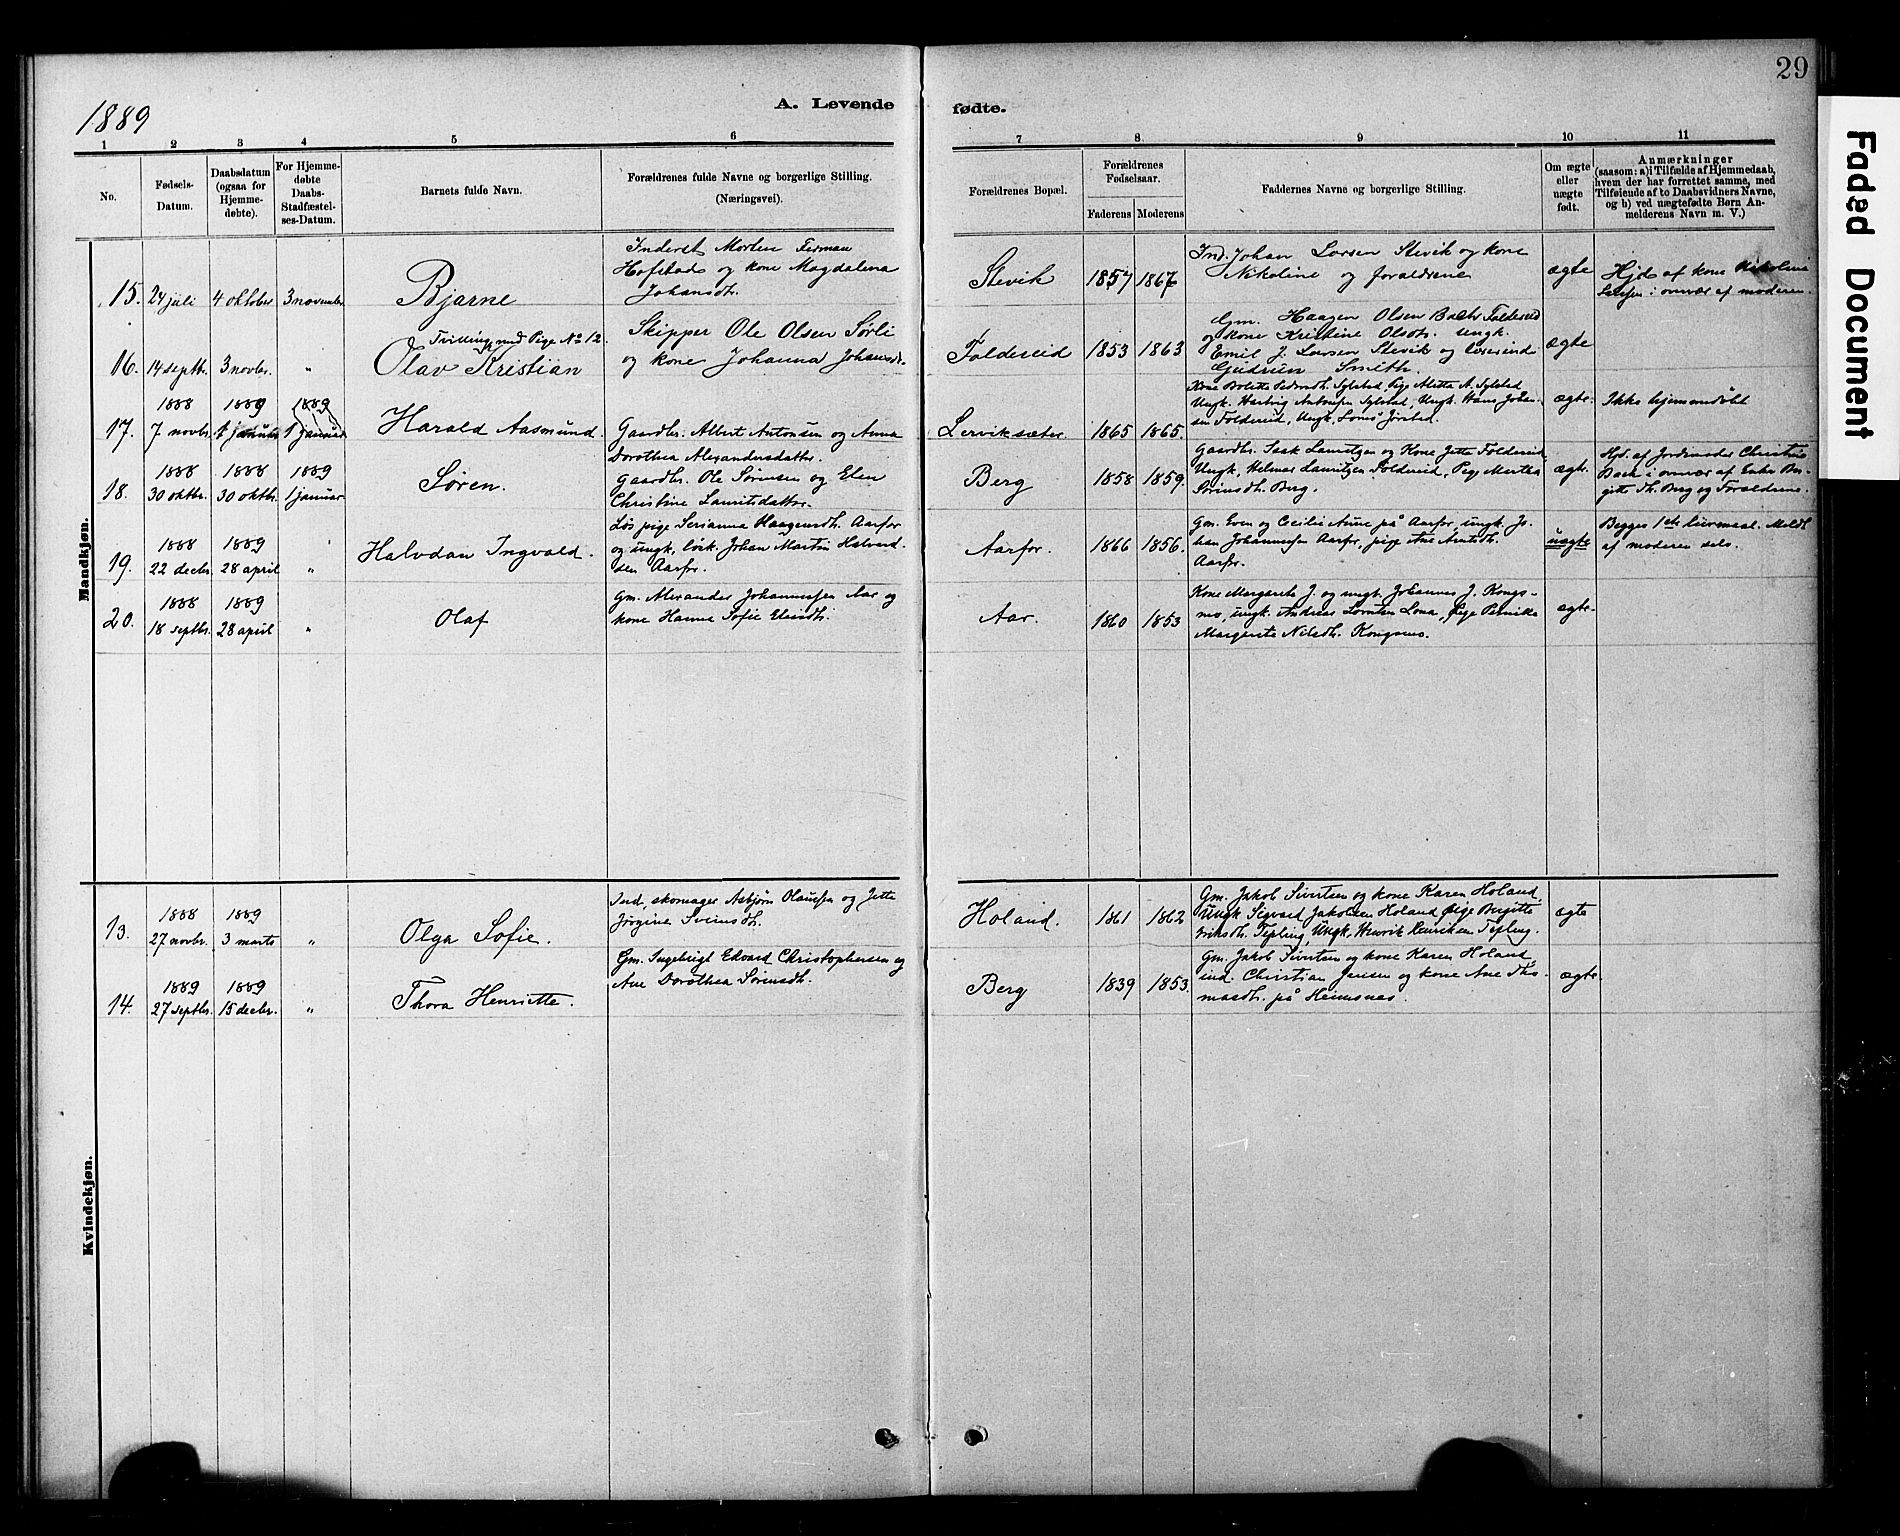 29
1889
A. Levende fødte.
Faded Document
1 2 3 4 5 6 7 8 9 10 11
No.
Fødsels-Datum.
Daabsdatum (ogsaa for Hjemme-døbte).
For Hjemme-døbte Daabs-Stadfæstel-ses-Datum.
Barnets fulde Navn.
Forældrenes fulde Navne og borgerlige Stilling. (Næringsvei).
Forældrenes Bopæl.
Forældrenes Fødselsaar.
Faderens Moderens
Faddernes Navne og borgerlige Stilling.
Om ægte eller uægte født.
Anmærkninger
(saasom: a) i Tilfælde af Hjemmedaab,
hvem der har forrettet samme, med
Tilføiende af to Daabsvidners Navne,
og b) ved uægtefødte Børn An-
melderens Navn m. V.)
Mandkjøn.
15. 24 juli 4 oktober 3 november Bjarne
Inderst Morten Ferman
Hofstad og kone Magdalena
Johansdtr.
Stevik 1857 1867
Ind. Johan Larsen Stevik og kone
Nikoline og forældrene
ægte
Hjd. af kone Nikoline
Larsen i overvær af moderen.
Tvilling med Pige No 12
16. 14 septbr. 3 novbr. " Olav Kristian
Skipper Ole Olsen Sørli
og kone Johanna Johansdtr.
Foldereid 1853 1863
Gm. Haagen Olsen Foldereid
og kone Kristine Olsdtr. Ungk.
Emil J. Larsen Stevik og
Gudrun Smith.
ægte
1888 1889 1889
17. 7 novbr. 1 januar 1 januar Harald Aasmund.
Gaardbr. Albert Antonsen og Anna
Dorothea Alexandersdatter.
Lerviksæter. 1865 1865.
Kone Bolette Pige Alette A.
Ungk. Hartvig Antonsen Ungk. Hans Johan-
sen Foldereid, Ungk. Jørstad.
ægte.
Ikke hjemmedøbt
1888 1888 1889
18. 30 oktbr. 30 oktbr. 1 januar Søren.
Gaardbr. Ole Sørensen og Elen
Christine Lauritsdatter.
Berg 1858 1859.
Gaardbr. Isak Lauritzen og Kone Jette Foldereid
Ungk. Helmer Lauritzen Foldereid, Pige Martha
Sørensdtr. Berg.
ægte.
Hjd. af Jordmoder Christine
i overvær af Enke Ber-
gitte Th. Berg og Forældrene.
1888 1889
19. 22 decbr. 28 april " Halvdan Ingvald.
Løs pige Serianna Haagensdtr. Aarfor
og ungk. løsk. Johan Martin Halvard-
sen Aarfor.
Aarfor. 1866 1856.
Gm. Even og Cecilie Aune på Aarfor, ungk. Jo-
han Johannessen Aarfor, pige Ane Arntsdtr.
Aarfor.
uægte
Begges 1ste leiermaal. Meldt
af moderen selv.
1888 1889
20. 18 septbr. 28 april " Olaf
Gm. Alexander Johannessen Aar og
kone Hanna Sofie Eliasdtr.
Aar. 1860 1853
Kone Margarete J. og ungk. Johannes J. Kongs-
mo, ungk. Andreas Lorntsen Lona, Pige Pernika
Margrete Nilsdtr. Kongsmo.
ægte.
Kvindekjøn.
1888 1889
13. 27 novbr. 3 marts " Olga Sofie.
Ind. skomager Asbjørn Olaussen og Jette
Jørgine Svensdtr.
Holand. 1861 1862
Gm. Jakob Sivertsen og kone Karen Holand,
Ungk. Sigvard Jakobsen Holand, Pige Bergitte
Eriksdtr. Tepling, Ungk. Henrik Henriksen Tepling.
ægte
1889 1889
14. 27 septbr. 15 decbr. " Thora Henriette.
Gm. Ingebrigt Edvard Christophersen og
Ane Dorothea Sørensdtr.
Berg 1839 1853.
Gm. Jakob Sivertsen og kone Karen Holand,
ind. Christian Jensen og kone Ane Tho-
masdtr. på Heimsnæs.
ægte.